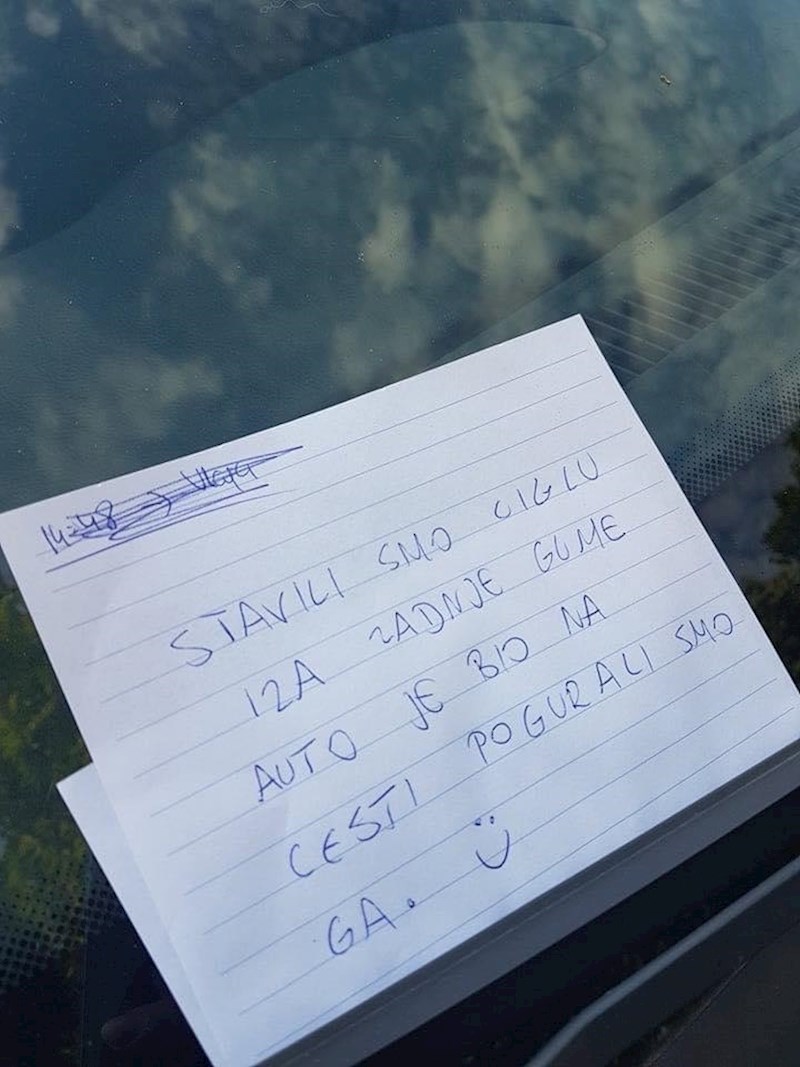 STAVILI SMO CIGLU
IZA ZADNJE GUME
AUTO JE BIO NA
CESTI POGURALI SMO
GA.